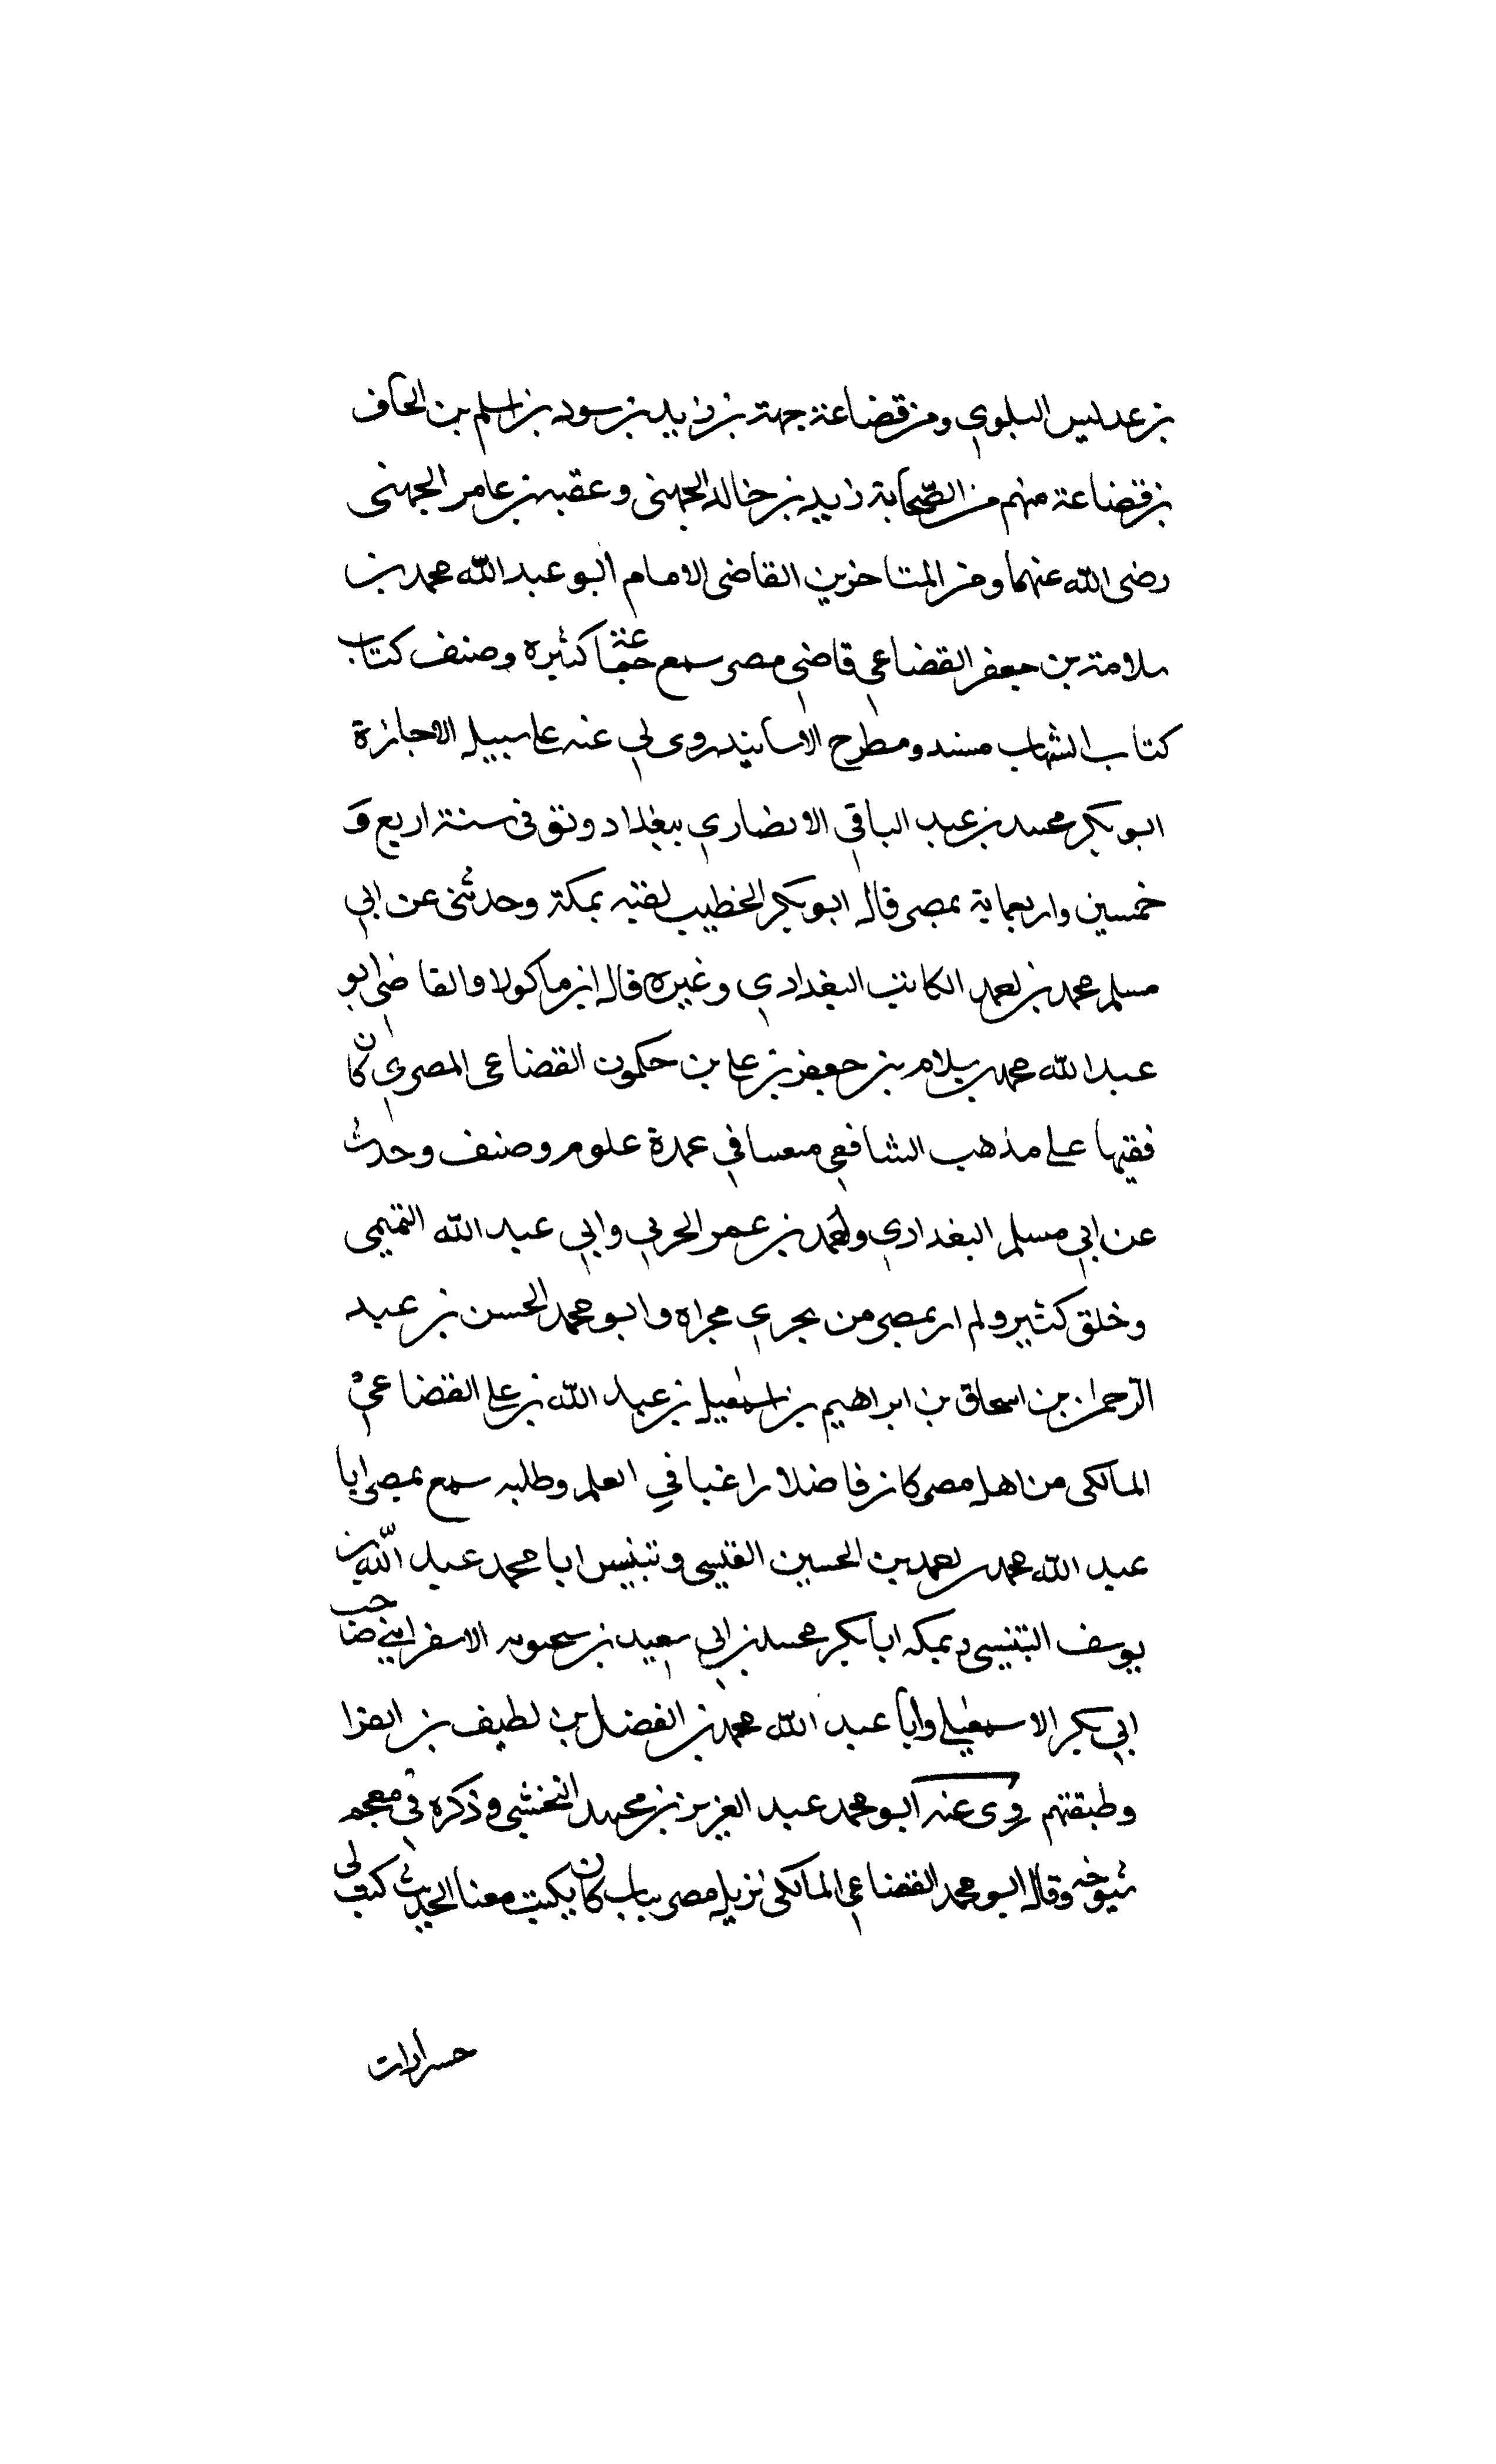 بن عديس البلوي ومن قضاعة جهينة بن زيد بن سود بن اسلم بن الحاف
بن قضاعة منهم من الصّحابة زيد بن خالد الجهني وعقبه بن عامر الجهني
رضى اللّه عنهما ومن المتاخرين القاضى الامام ابو عبد اللّه محمد بن
سلامة بن جعفر القضاعي قاضي مصر سمع جماعة كثيره وصنف كتاب
كتاب الشهاب مسند ومطرح الاسانيد روى لي عنه على سبيل الاجازة
ابو بكر محمد بن عبد الباقي الانصاري ببغداد وتوفى سنة اربع وَ
خمسين واربعماية بمصر قال ابو بكر الخطيب لقيته بمكة وحدثنى عن ابي
مسلم محمد بن احمد الكاتب البغدادي وغيره قال ابن ماكولا والقاضي ابو
عبد اللّه محمد بن سلام بن جعفر بن على بن حكمون القضاعى المصري كان
فقيها على مذهب الشافعي في عمدة علوم وصنف وحدث
عن ابي مسلم البغدادي واحمد بن عمر الحربي وابي عبد اللّه التميمى
وخلق كثير ولم ار بمصر من يجري مجراه وابو محمد الحسن بن عبد
الرّحمن بن اسحاق بن ابراهيم بن اسمعيل بن عبد اللّه بن على القضاعي
المالكى من اهل مصر كان فاضلا راغبا في العلم وطلبه سمع بمصر ابا
عبد اللّه محمد بن احمد بن الحسين القيسى وتبنيس ابا محمد عبد اللّه بن
يوسف التنيسى وبمكه ابا بكر محمد بن ابي سعيد بن سحنويه الاسفرايني صاحب
ابي بكر الاسمعيلي وابا عبد اللّه محمد بن الفضل بن لطيف بن الفرا
وطبقتهم روى عنه ابو محمد عبد العزيز بن محمد النخشبي وذكره في معجم
شيوخه وقال ابو محمد القضاعي المالكى نزيل مصر بباب كان يكتب معنا الحديث كتب لي